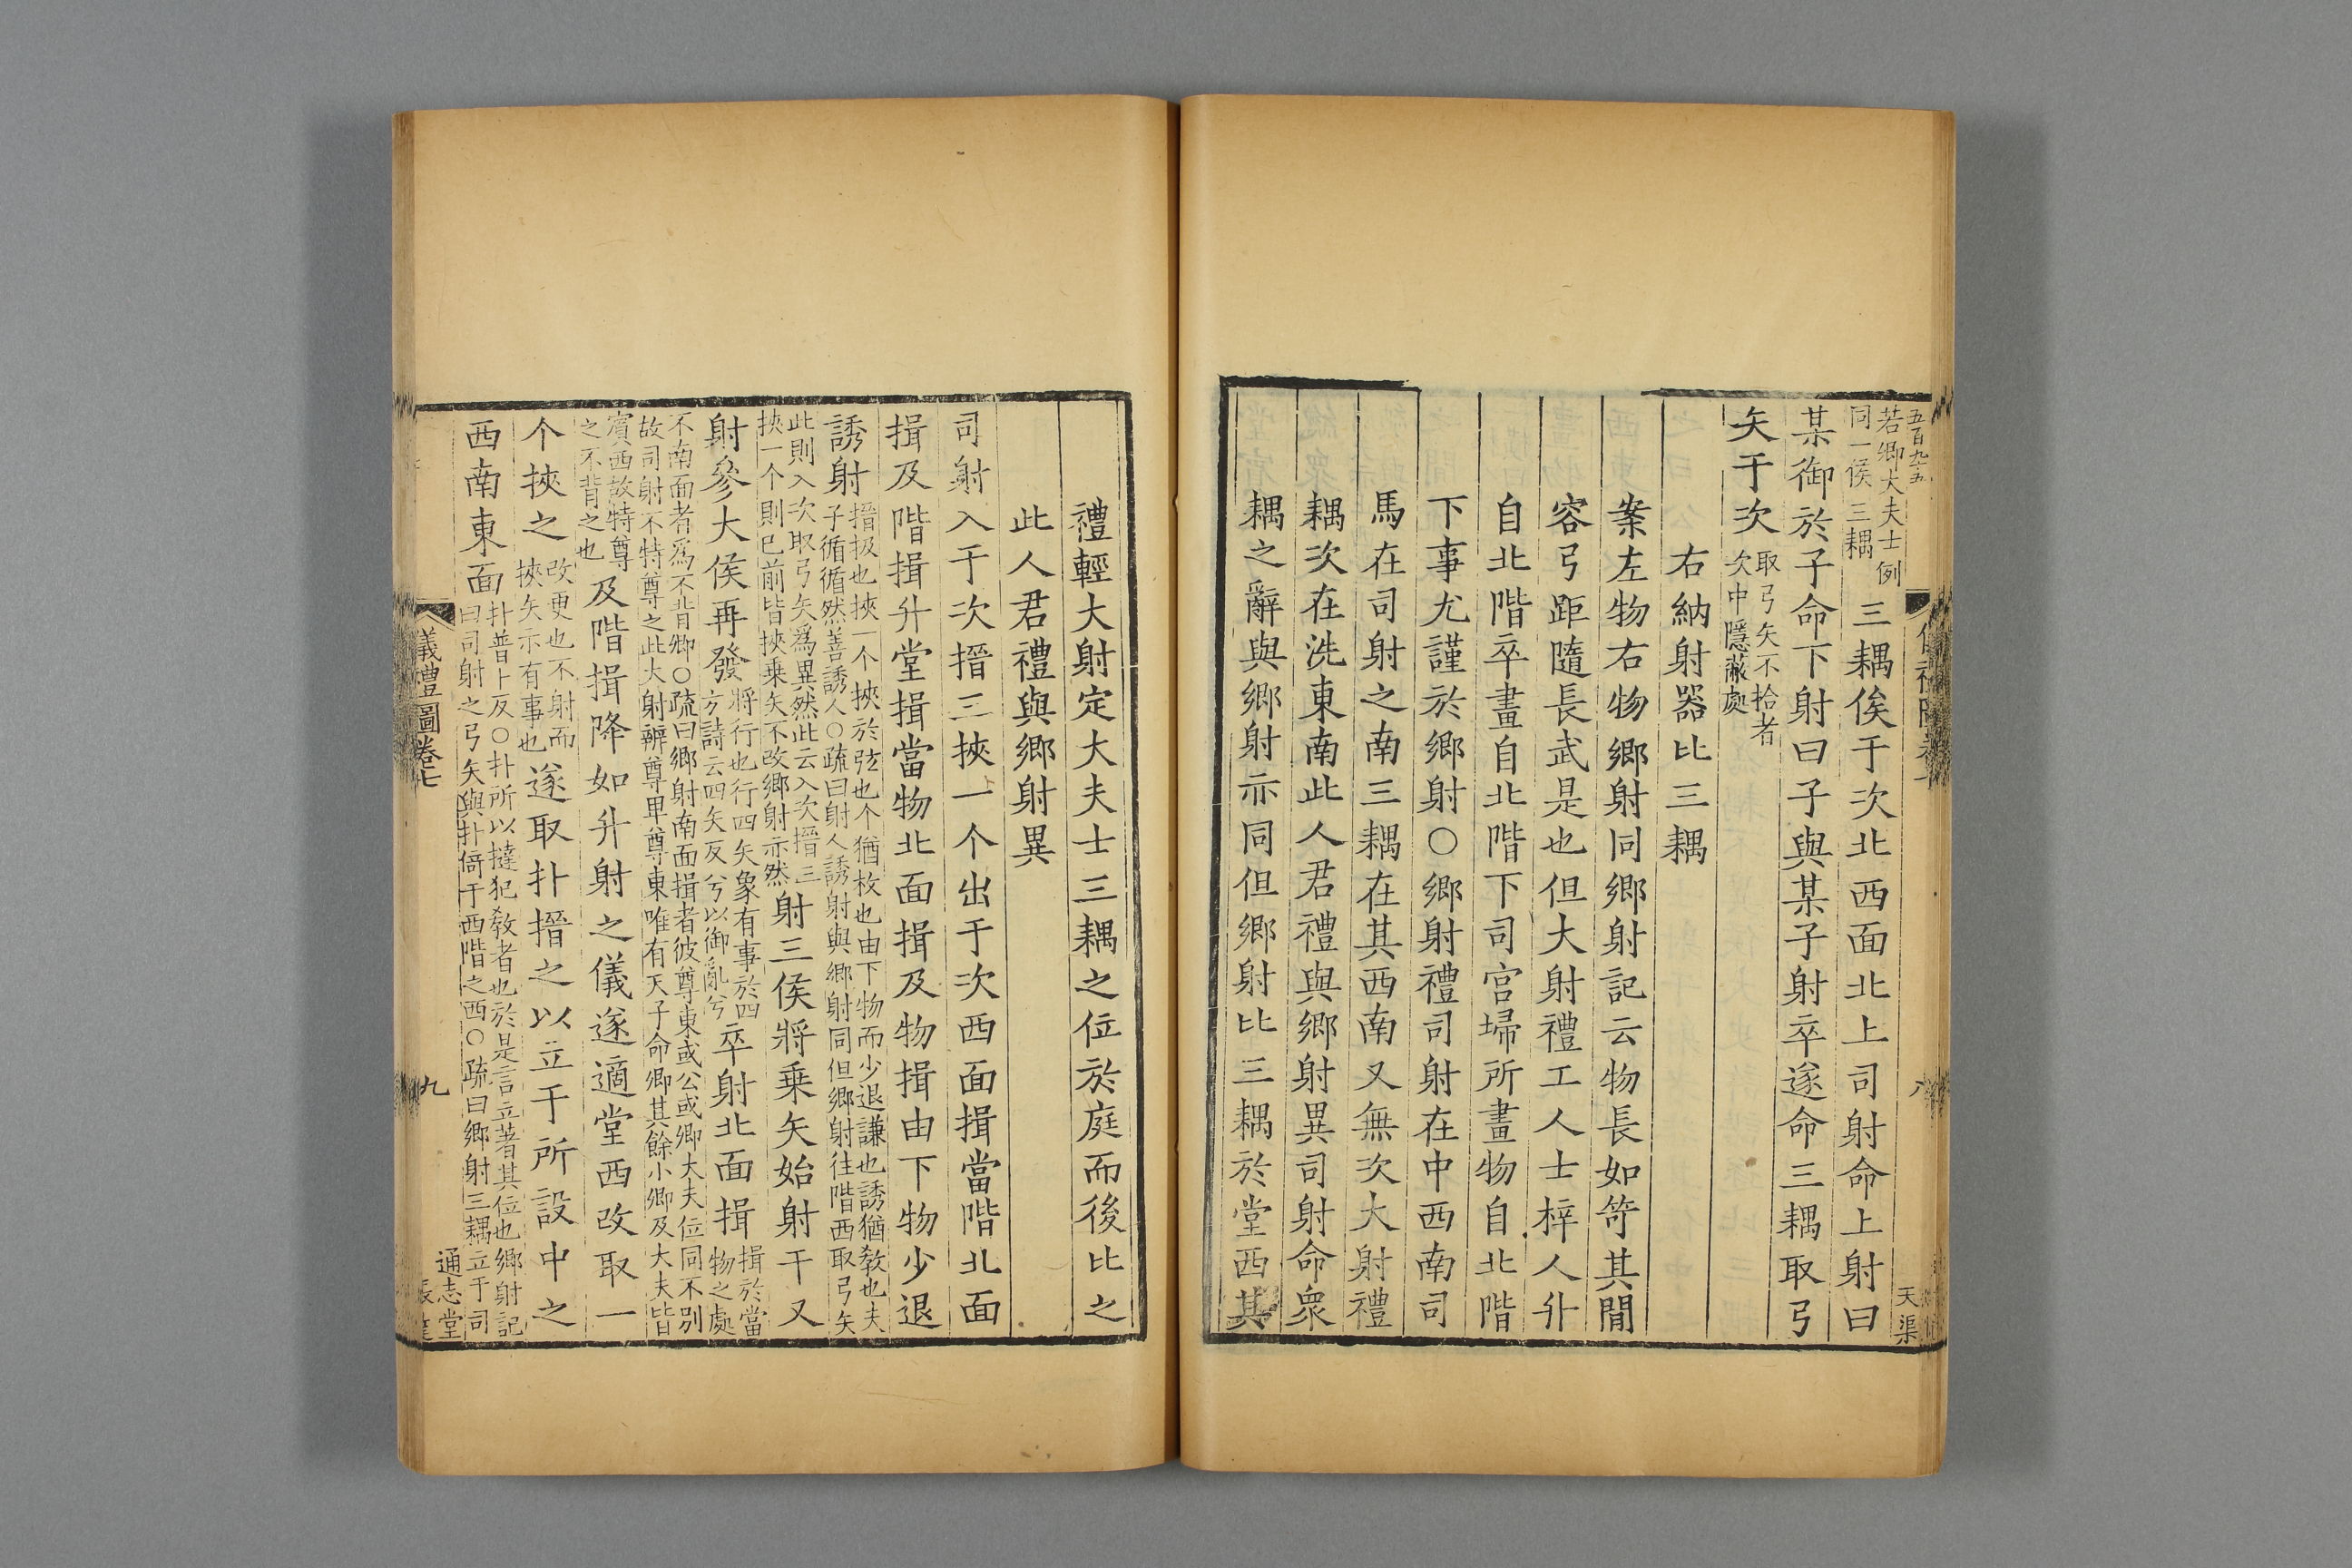 五百九十五
若卿大夫士例
同一侯三耦
三耦俟于次北西面北上司射命上射曰
某御於子命下射曰子與某子射卒遂命三耦取弓
矢于次
取弓矢不拾者
次中隱蔽處
右納射器比三耦
案左物右物鄉射同鄉射記云物長如笴其閒
容弓距隨長武是也但大射禮工人士梓人升
自北階卒畫自北階下司宫埽所畫物自北階
下事尤謹於鄉射○鄉射禮司射在中西南司
馬在司射之南三耦在其西南又無次大射禮
耦次在洗東南此人君禮與鄉射異司射命衆
耦之辭與鄉射亦同但鄉射比三耦於堂西其
八
天渠
禮輕大射定大夫士三耦之位於庭而後比之
此人君禮與鄉射異
司射入于次搢三挾一个出于次西面揖當階北面
揖及階揖升堂揖當物北面揖及物揖由下物少退
誘射
搢扱也挾一个挾於弦也个猶枚也由下物而少退謙也誘猶敎也夫
子循循然善誘人○疏曰射人誘射與鄉射同但鄉射往階西取弓矢
此則入次取弓矢爲異然此云入次搢三
挾一个則巳前皆挾乗矢不改鄉射亦然
射三侯將乗矢始射干又
射參大侯再發
將行也行四矢象有事於四
方詩云四矢反兮以御亂兮
卒射北面揖
揖於當
物之處
不南面者爲不背卿○疏曰鄉射南面揖者彼尊東或公或卿大夫位同不別
故司射不特尊之此大射辨尊卑尊東唯有天子命卿其餘小卿及大夫皆
賓西故特尊
之不背之也
及階揖降如升射之儀遂適堂西改取一
个挾之
改更也不射而
挾矢示有事也
遂取扑搢之以立于所設中之
西南東面
扑普卜反○扑所以撻犯敎者也於是言立著其位也鄉射記
曰司射之弓矢與扑倚于西階之西○疏曰鄉射三耦立于司
儀禮圖卷七
九
通志堂